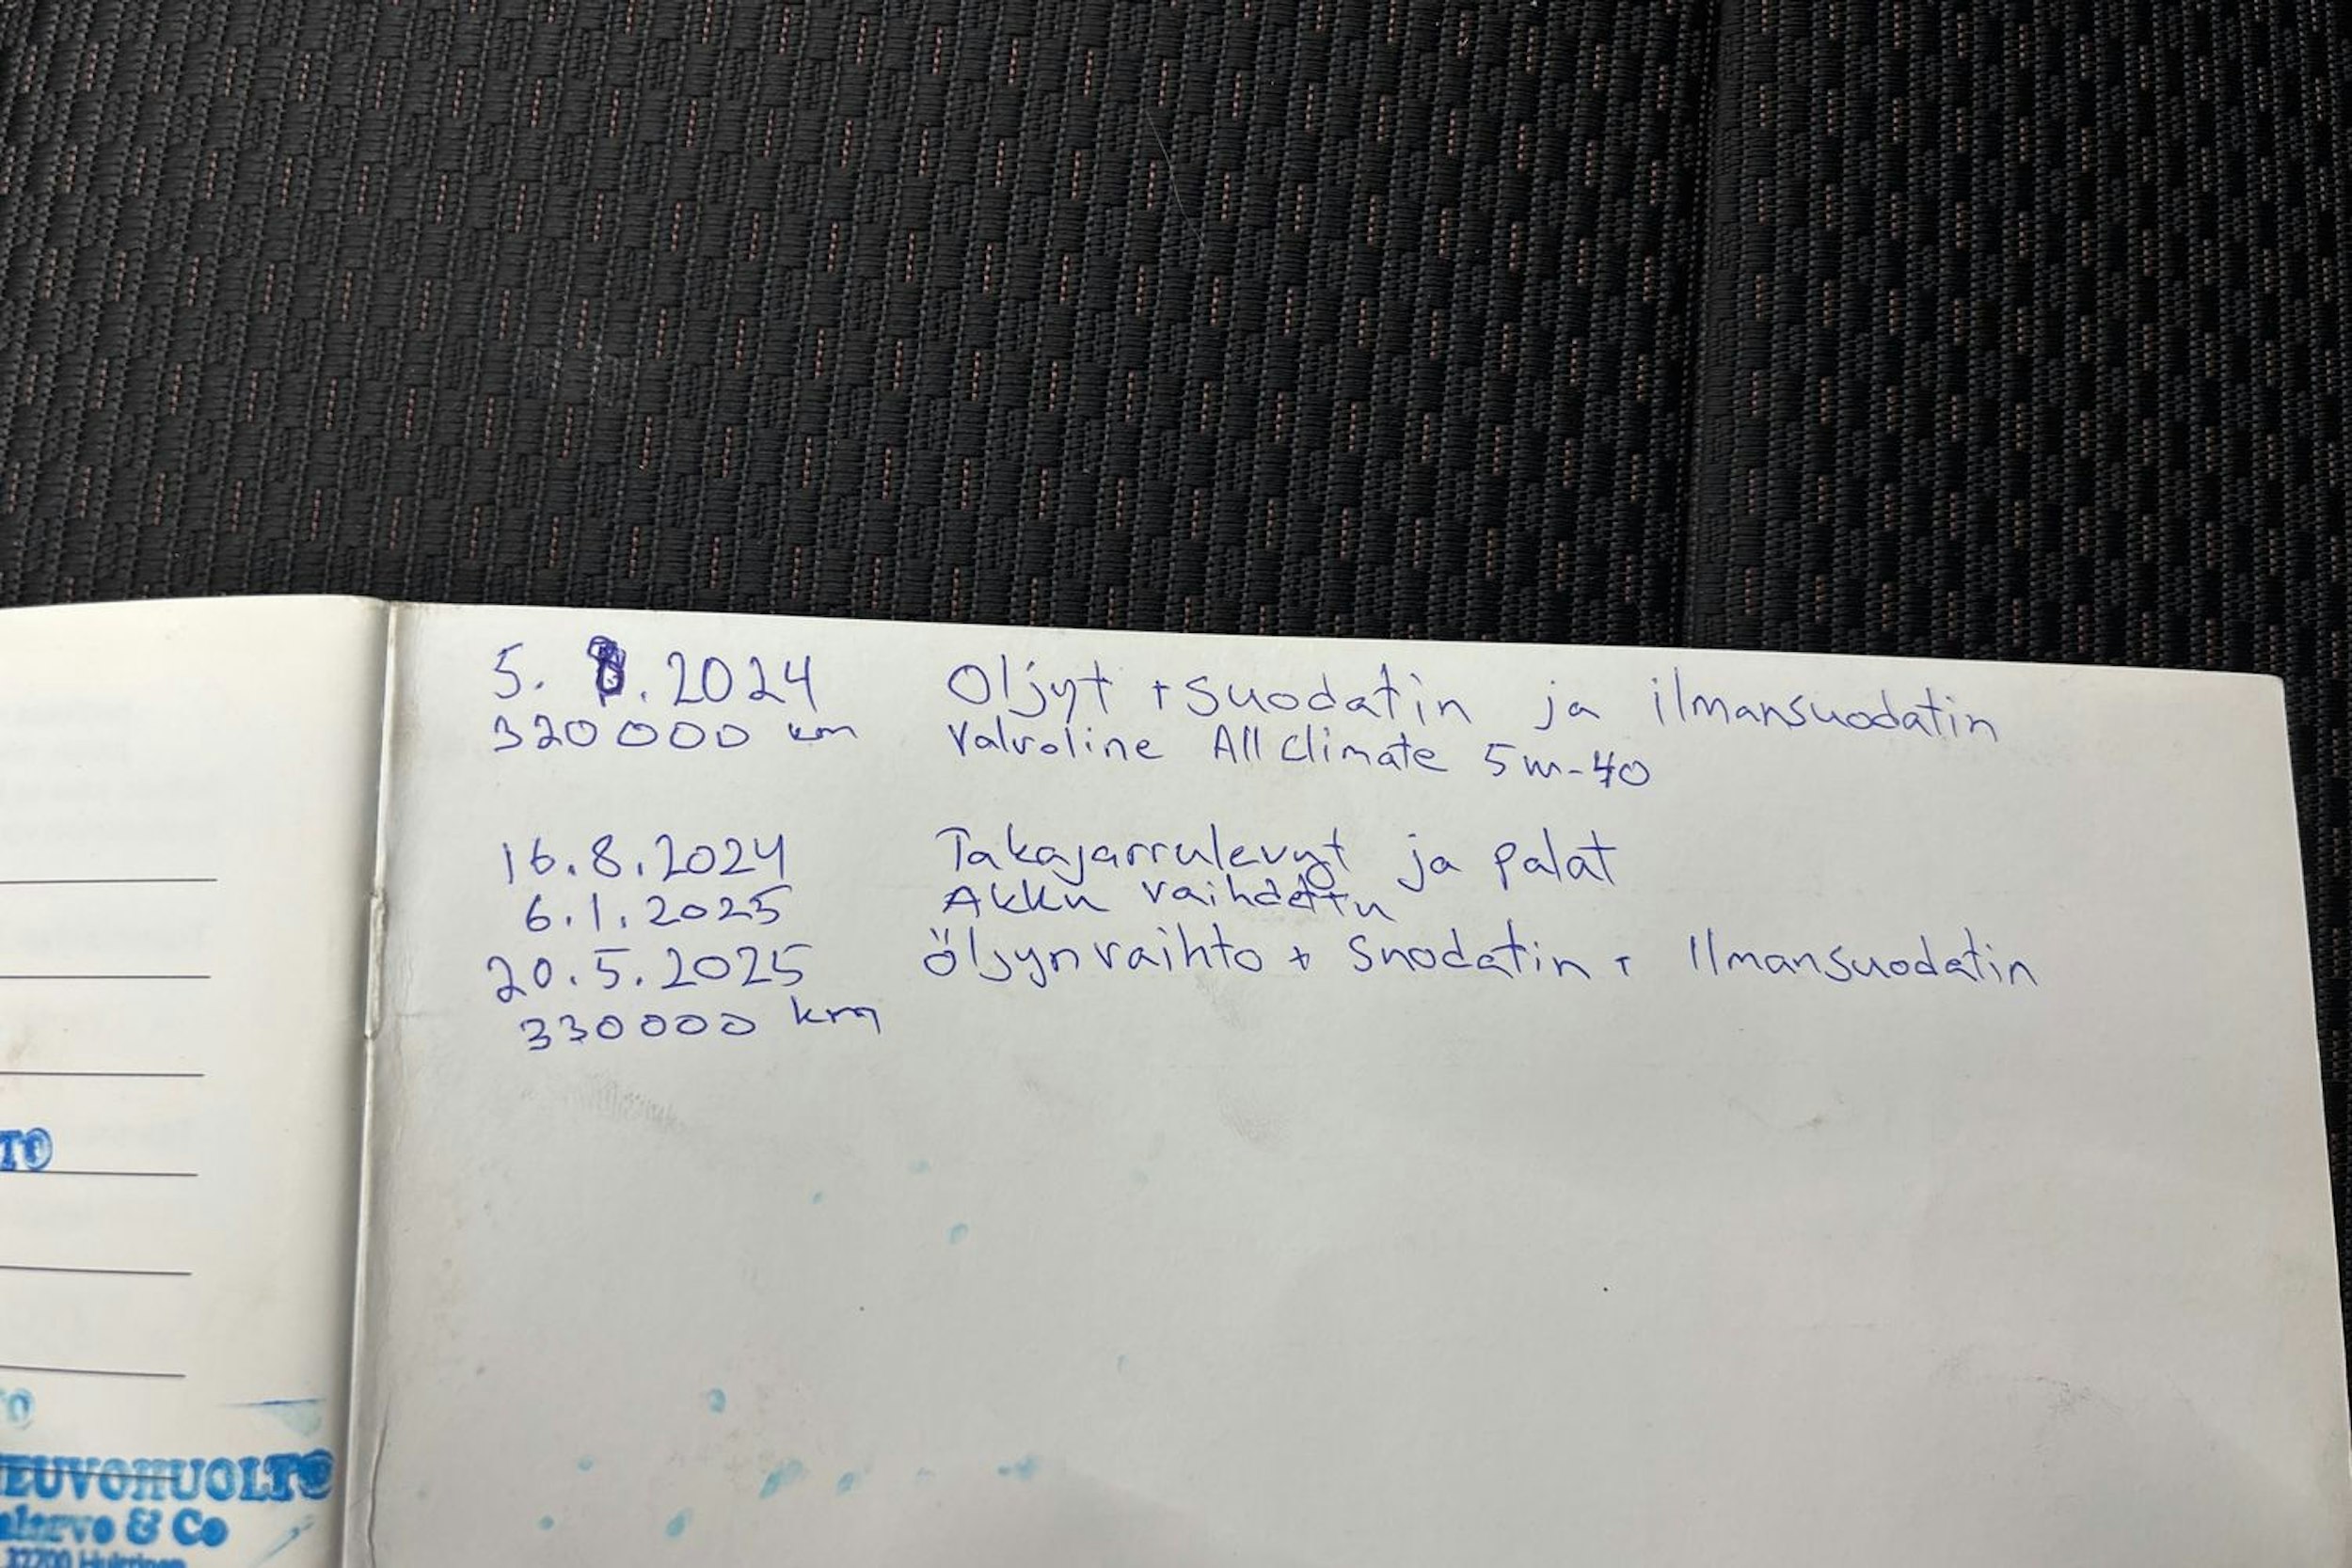 5. 8. 2024 Öljyt + suodatin ja ilmansuodatin
320 000 km Valvoline All Climate 5w-40
16.8.2024 Takajarrulevyt ja palat
6.1.2025 Akku vaihdettu
20.5.2025 Öljynvaihto + Suodatin + Ilmansuodatin
330000 km
TO
EUVOHUOLTO
alervo & Co